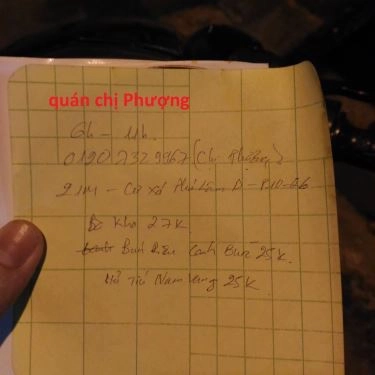 quán chị Phượng
6h - 11h.
0120 732 9867 (Chị Phượng)
211M - Cư xá Phú Lâm D - P10 - Q6
Bò kho 27k
Bún riêu canh bún 25k.
Hủ Tiếu Nam Vang 25k